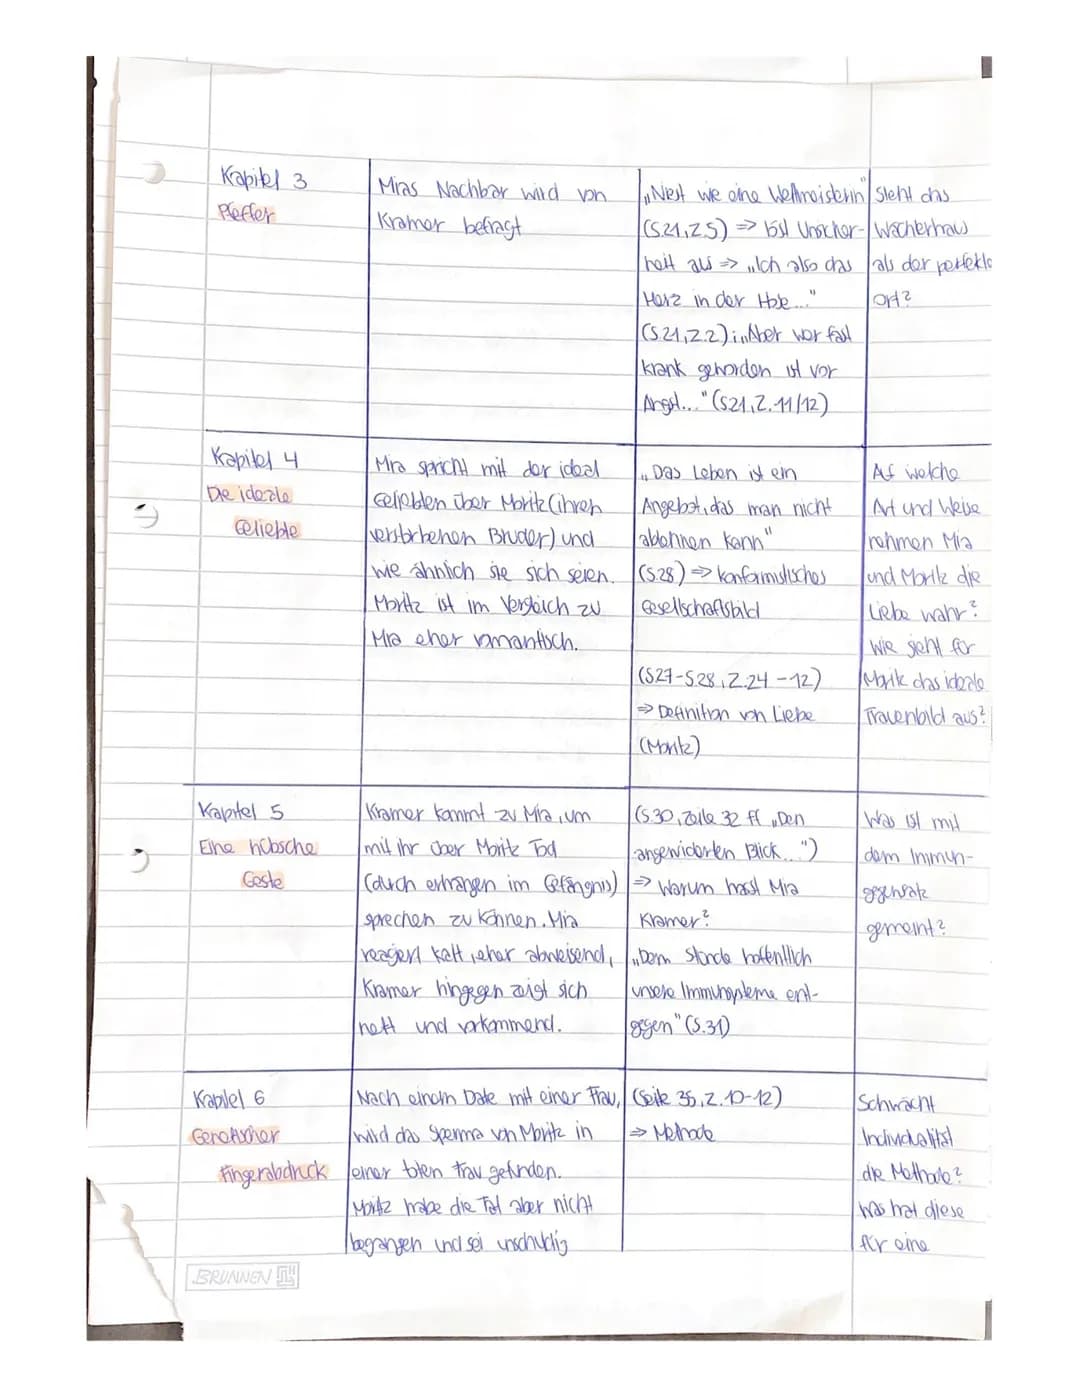 Kapitel 3
Pfeffer
Mias Nachbar wird von
Kramer befragt
„Niest wie eine Weltmeisterin"
(S.21, Z.5) => löst Unsicher-
heit aus => „Ich also das
Herz in der Hose..."
(S.21, Z.2); „Aber wer fast
krank geworden ist vor
Angst..." (S21, Z.11/12)
Steht das
Wächterhaus
als der perfekte
Ort?
Kapitel 4
Die ideale
Geliebte
Mia spricht mit der ideal
Geliebten über Moritz (ihren
verstorbenen Bruder) und
wie ähnlich sie sich seien.
Moritz ist im Vergleich zu
Mia eher romantisch.
„Das Leben ist ein
Angebot, das man nicht
ablehnen kann"
(S.28) => konformistisches
Gesellschaftsbild
(S27-S28, Z.24-12)
=> Definition von Liebe
(Moritz)
Auf welche
Art und Weise
nehmen Mia
und Moritz die
Liebe wahr?
Wie sieht für
Moritz das ideale
Frauenbild aus?
Kapitel 5
Eine hübsche
Geste
Kramer kommt zu Mia, um
mit ihr über Moritz Tod
(durch erhängen im Gefängnis)
sprechen zu können. Mia
reagiert kalt, eher abweisend,
Kramer hingegen zeigt sich
nett und vorkommend.
(S.30, Zeile 32 ff „Den
angewiderten Blick...")
=> Warum hasst Mia
Kramer?
„Dem stände hoffentlich
unsere Immunsysteme ent-
gegen" (S.31)
Was ist mit
dem Immun-
gegensatz
gemeint?
Kapitel 6
Genetischer
Fingerabdruck
Nach einem Date mit einer Frau,
wird das Sperma von Moritz in
einer toten Frau gefunden.
Moritz habe die Tat aber nicht
begangen und sei unschuldig
(Seite 35, Z.10-12)
=> Methode
Schwächt
Individualität
die Methode?
Was hat diese
für eine
BRUNNEN